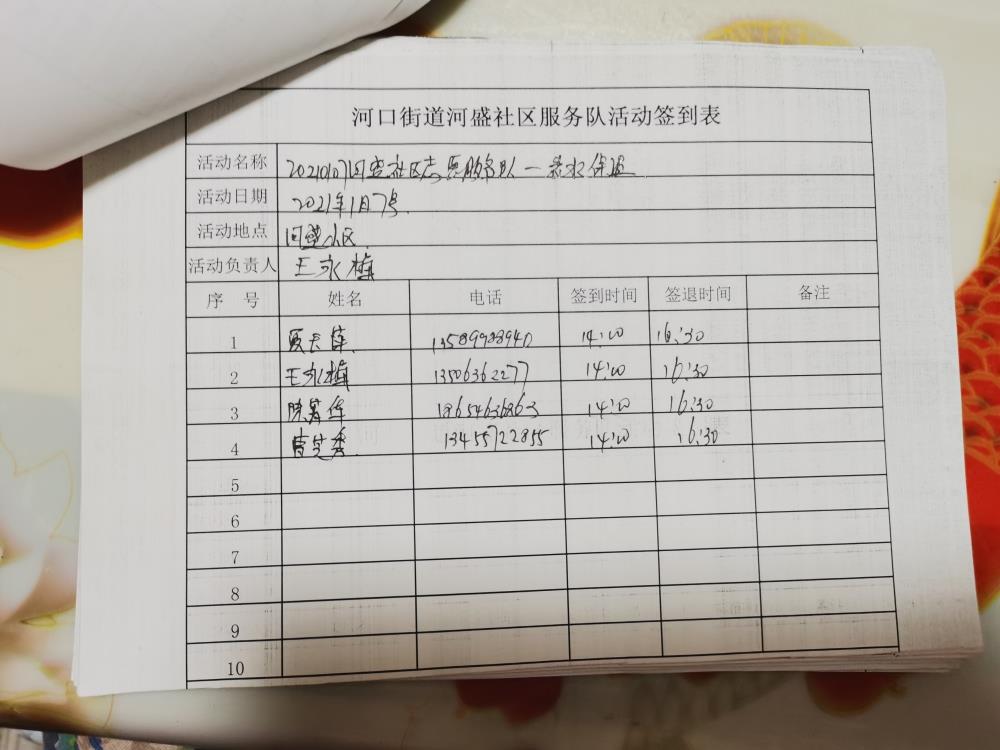 河口街道河盛社区服务队活动签到表
活动名称 20210107河盛社区志愿服务队一 保温
活动日期 2021年1月7号
活动地点 河盛小区
活动负责人 王永梅
序 号 姓名 电话 签到时间 签退时间 备注
1 13589988940 14:00 16:30
2 王永梅 13506362277 14:00 16:30
3 14:00 16:30
4 曹芝秀 13455722855 14:00 16:30
5
6
7
8
9
10